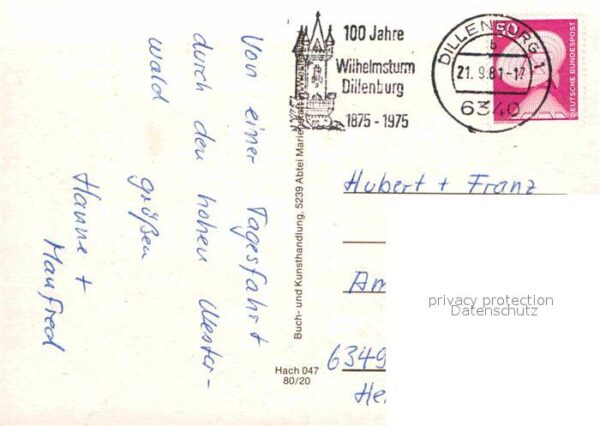 Von einer Tagesfahrt
durch den hohen Wester-
wald
grüßen
Hanne +
Manfred
100 Jahre
Wilhelmsturm
Dillenburg
1875-1975
DILLENBURG 1
b
21.9.81-17
6340
DEUTSCHE BUNDESPOST
Buch- und Kunsthandlung, 5239 Abtei Marienstatt
Hach 047
80/20
Hubert + Franz
Am
6349
privacy protection
Datenschutz